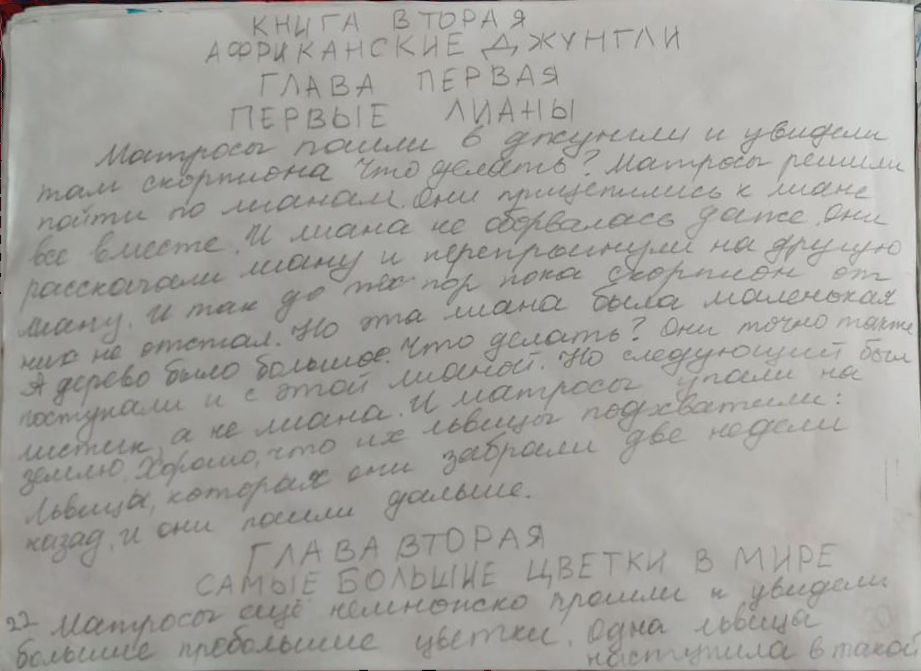 КНИГА ВТОРАЯ
АФРИКАНСКИЕ ДЖУНГЛИ
ГЛАВА ПЕРВАЯ
ПЕРВЫЕ ЛИАНЫ
Матросы пошли в джунгли и увидели
там скорпиона. Что делать? Матросы решили
пойти по лианам. Они прицепились к лиане
все вместе. И лиана не оборвалась даже. Они
раскачали лиану и перепрыгнули на другую
лиану. И так до тех пор пока скорпион от
них не отстал. Но эта лиана была маленькая
А дерево было большое. Что делать? Они точно также
поступили и с этой лианой. Но следующий был
листик, а не лиана. И матросы упали на
землю. Хорошо, что их львицы подхватили:
Львицы, которых они забрали две недели
назад, и они пошли дальше.
ГЛАВА ВТОРАЯ
САМЫЕ БОЛЬШИЕ ЦВЕТКИ В МИРЕ
22 Матросы ещё немножко прошли и увидели
большие пребольшие цветки. Одна львица
наступила в такой